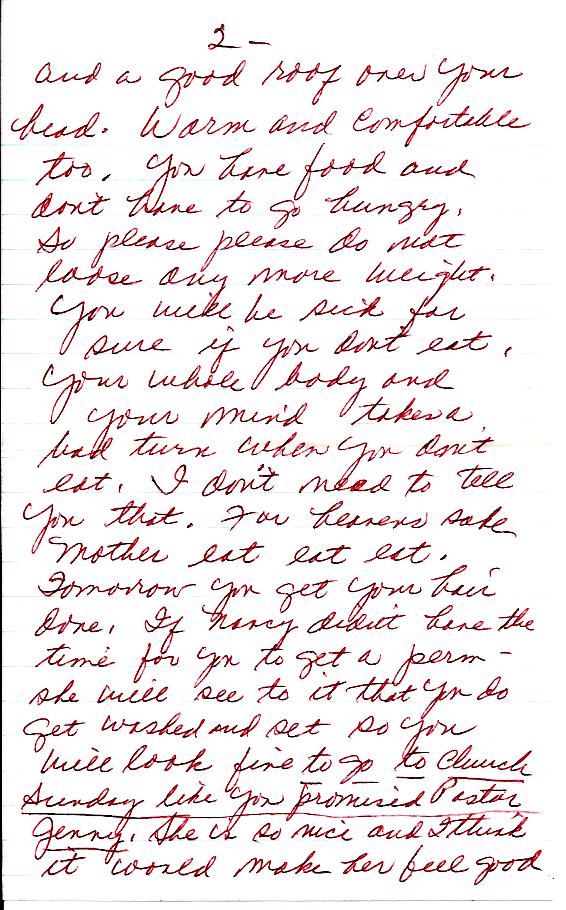 2 -
and a good roof over your
head. Warm and Comfortable
too. You have food and
don't have to go hungry.
So please please do not
loose any more weight.
You will be sick for
sure if you don't eat.
Your whole body and
your mind takes a
bad turn when you don't
eat. I don't need to tell
you that. For heavens sake
Mother eat eat eat.
Tomorrow you get your hair
done. If Nancy didn't have the
time for you to get a perm -
she will see to it that you do
get washed and set so you
will look fine to go to Church
Sunday like you promised Pastor
Jenny. She is so nice and I think
it would make her feel good